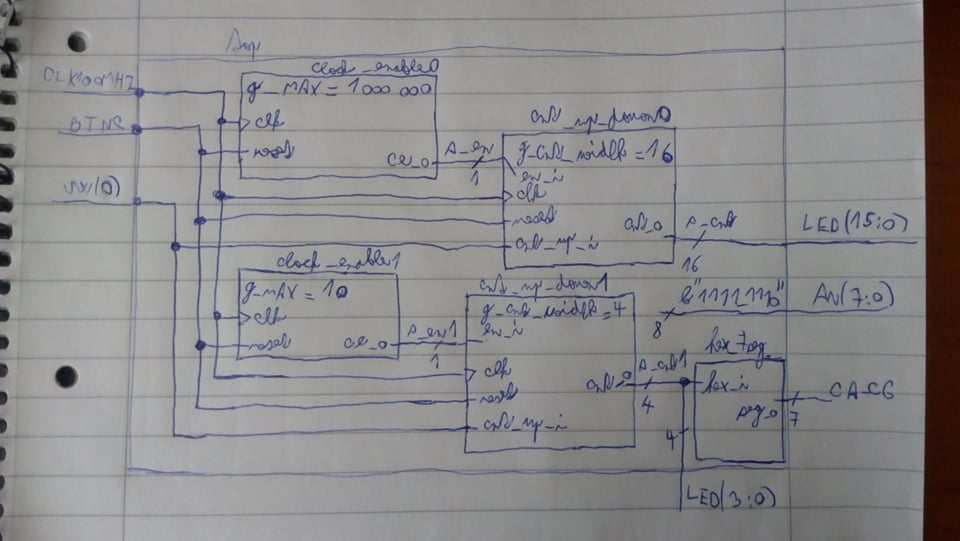 top
CLK100MHZ
BTNC
SW(0)
clock_enable0
g_MAX = 1000 000
clk
reset
ce_o
s_en
1
cnt_up_down0
g_cnt_width = 16
en_i
clk
reset
cnt_up_i
cnt_o
s_cnt
16
LED(15:0)
clock_enable1
g_MAX = 10
clk
reset
ce_o
s_en1
1
cnt_up_down1
g_cnt_width = 4
en_i
clk
reset
cnt_up_i
cnt_o
s_cnt1
4
b"1111_1110"
8
AN(7:0)
hex_7seg
hex_i
seg_o
7
CA_CG
4
LED(3:0)